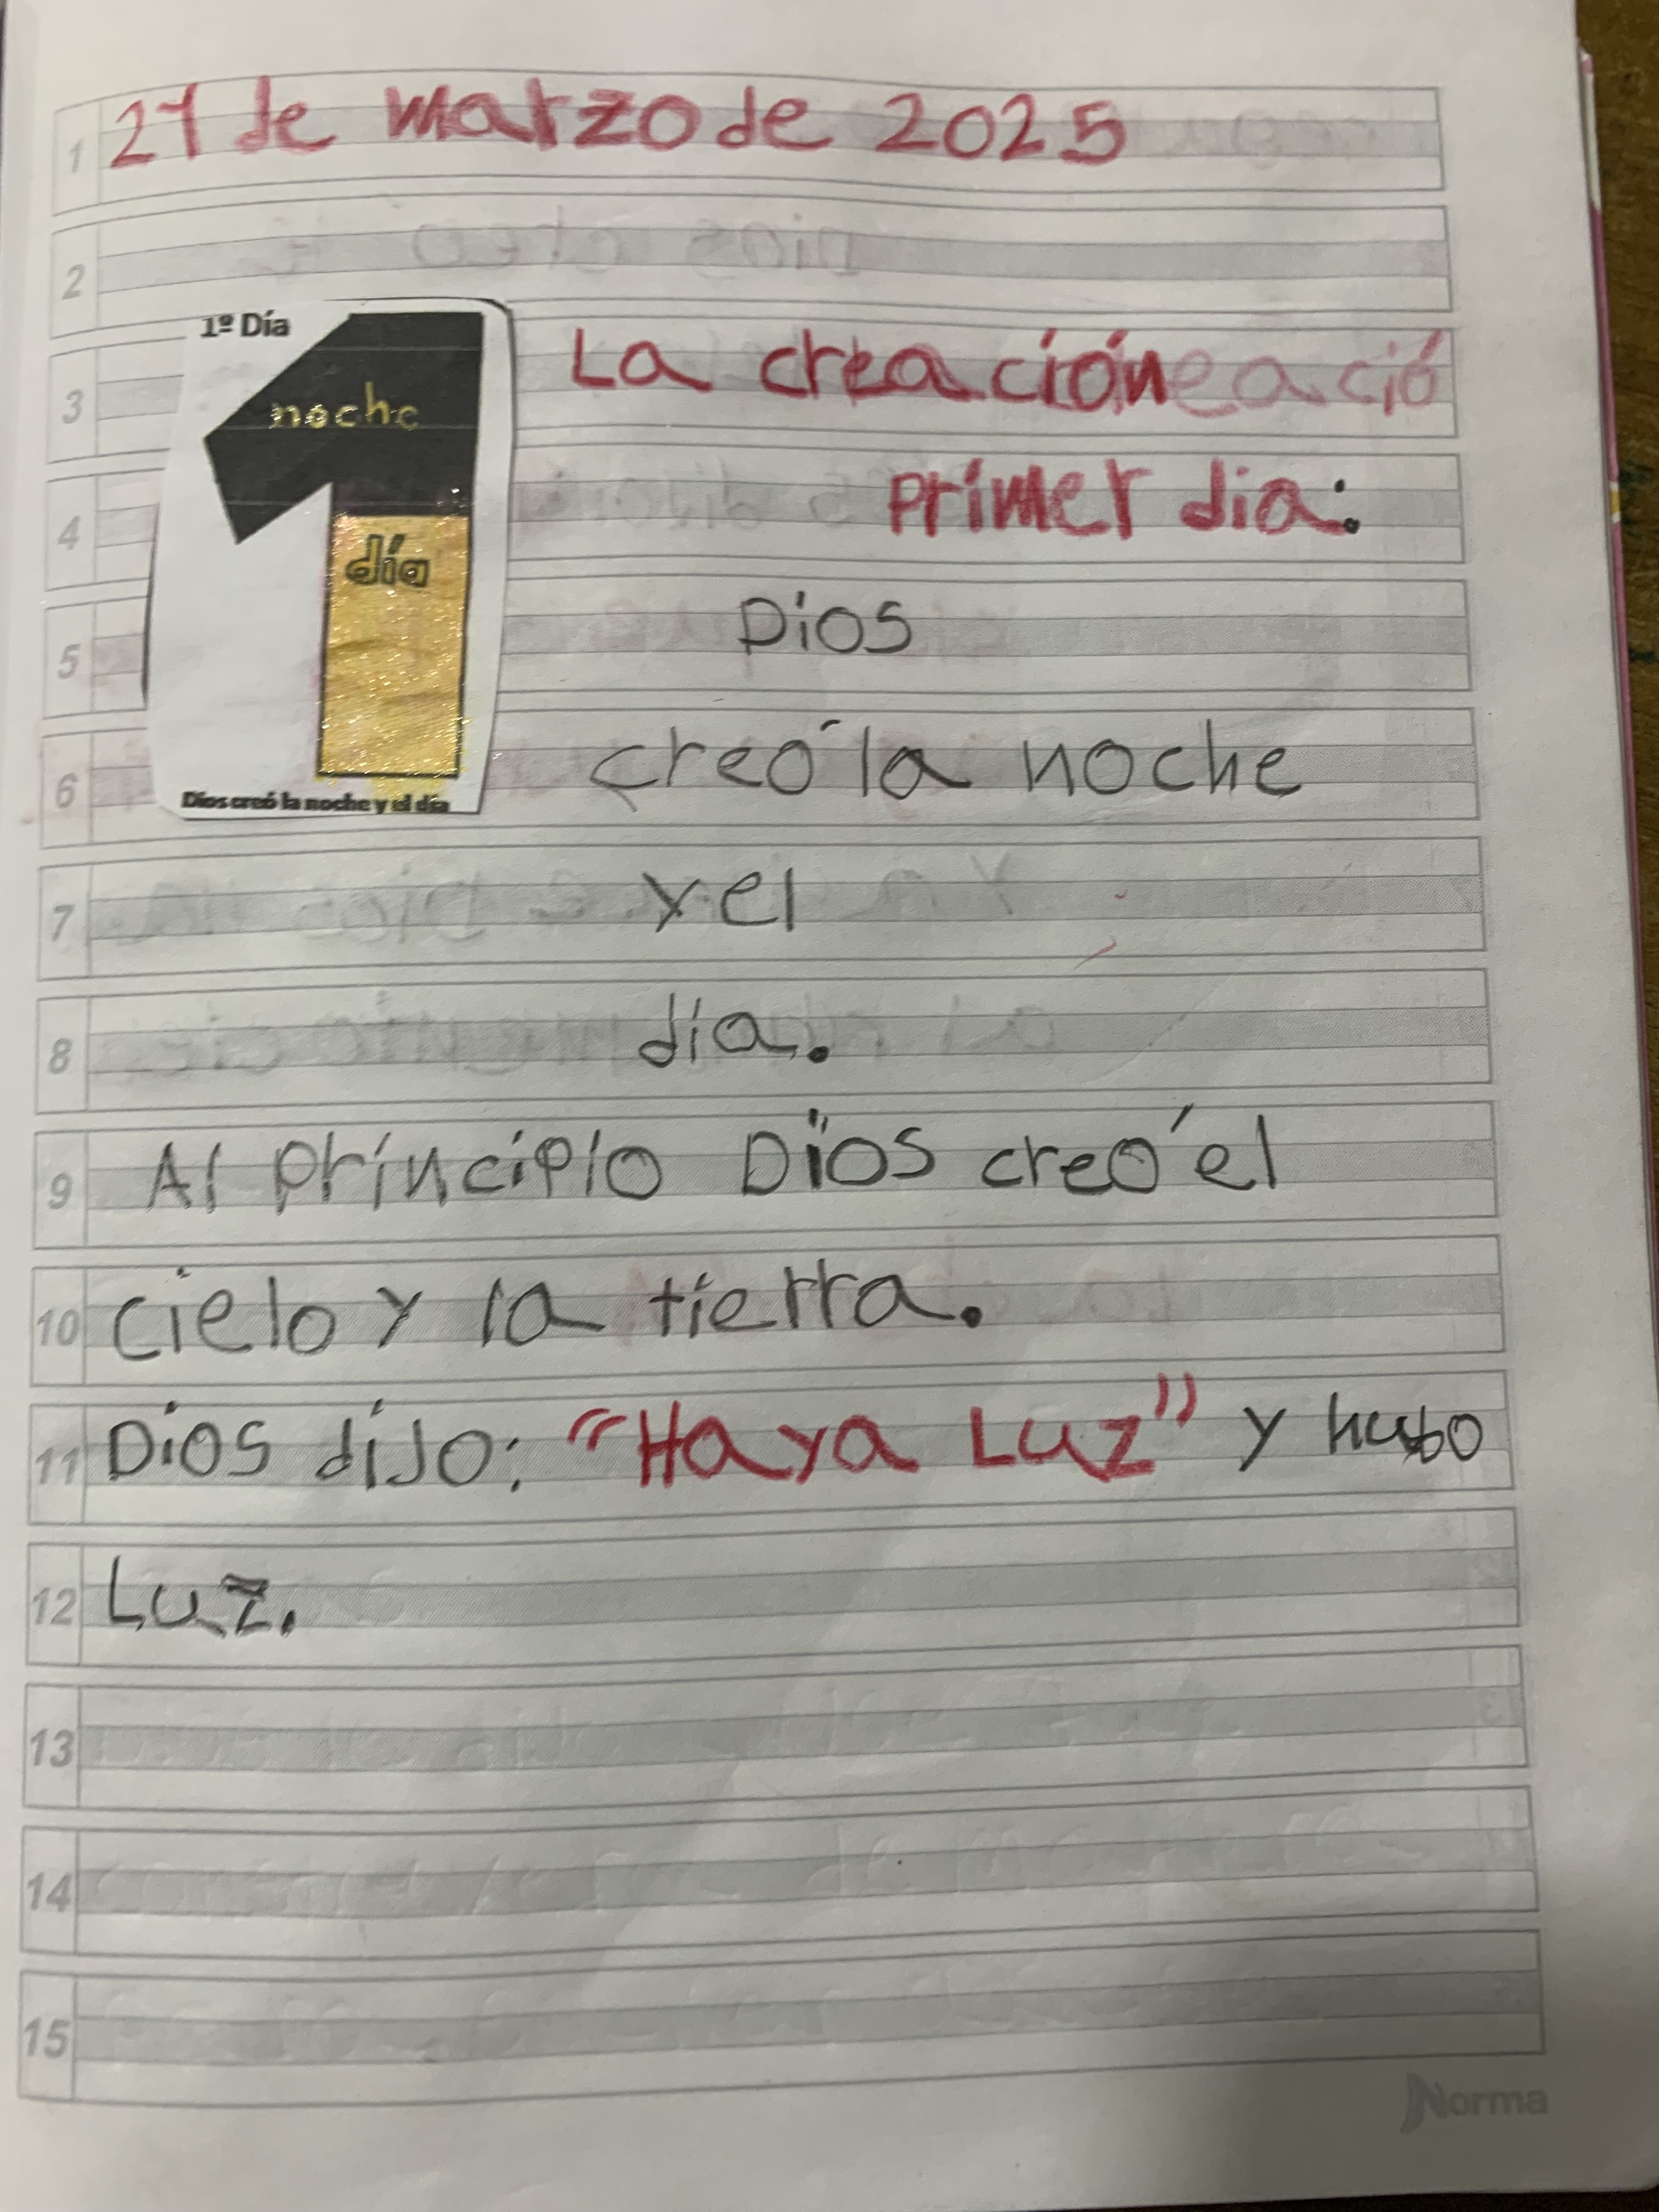 1 27 de marzo de 2025
2
1º Día
noche
día
Dios creó la noche y el día
3 La creación
4 Primer dia:
5 Dios
6 creó la noche
7 y el
8 día.
9 Al principio Dios creó el
10 cielo y la tierra.
11 Dios dijo: "Haya Luz" y hubo
12 Luz.
13
14
15
Norma